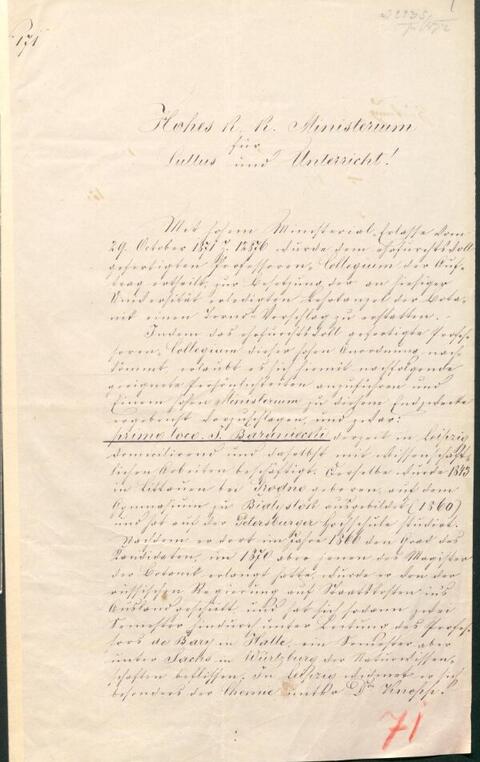 171
Hohes k. k. Ministerium
für
Cultus und Unterricht!
Mit hohem Ministerial-Erlasse vom
29. October 1871 Z. 12876 wurde dem ehrfurchtsvoll
gefertigten Professoren-Collegium der Auf-
trag ertheilt, zur Besetzung der an hiesiger
Universität erledigten Lehrkanzel der Bota-
nik einen Terno-Vorschlag zu erstatten.
Indem das ehrfurchtsvoll gefertigte Profes-
soren-Collegium dieser hohen Anordnung nach-
kommt, erlaubt es sich hiermit nachfolgende
geeignete Persönlichkeiten anzuführen und
Einem hohen Ministerium zu diesem Endzwecke
ergebenst vorzuschlagen, und zwar:
primo loco J. Baraniecki derzeit in Leipzig
domicilirend und daselbst mit wissenschaft-
lichen Arbeiten beschäftigt. Derselbe wurde 1843
in Littauen bei Grodno geboren, auf dem
Gymnasium zu Białystok ausgebildet (1860)
und hat auf der Petersburger Hochschule studiert.
Nachdem er dort im Jahre 1866 den Grad des
Kandidaten, im 1870 aber jenen des Magister
der Botanik erlangt hatte, wurde er von der
russischen Regierung auf Staatskosten ins
Ausland geschickt und hat sich sodann zwei
Semester hindurch unter Leitung des Profes-
sors de Bary in Halle, ein Semester aber
unter Sachs in Würtzburg der Naturwissen-
schaften beflissen. In Leipzig widmet er sich
besonders der Chemie unter Dr Knopp.
71